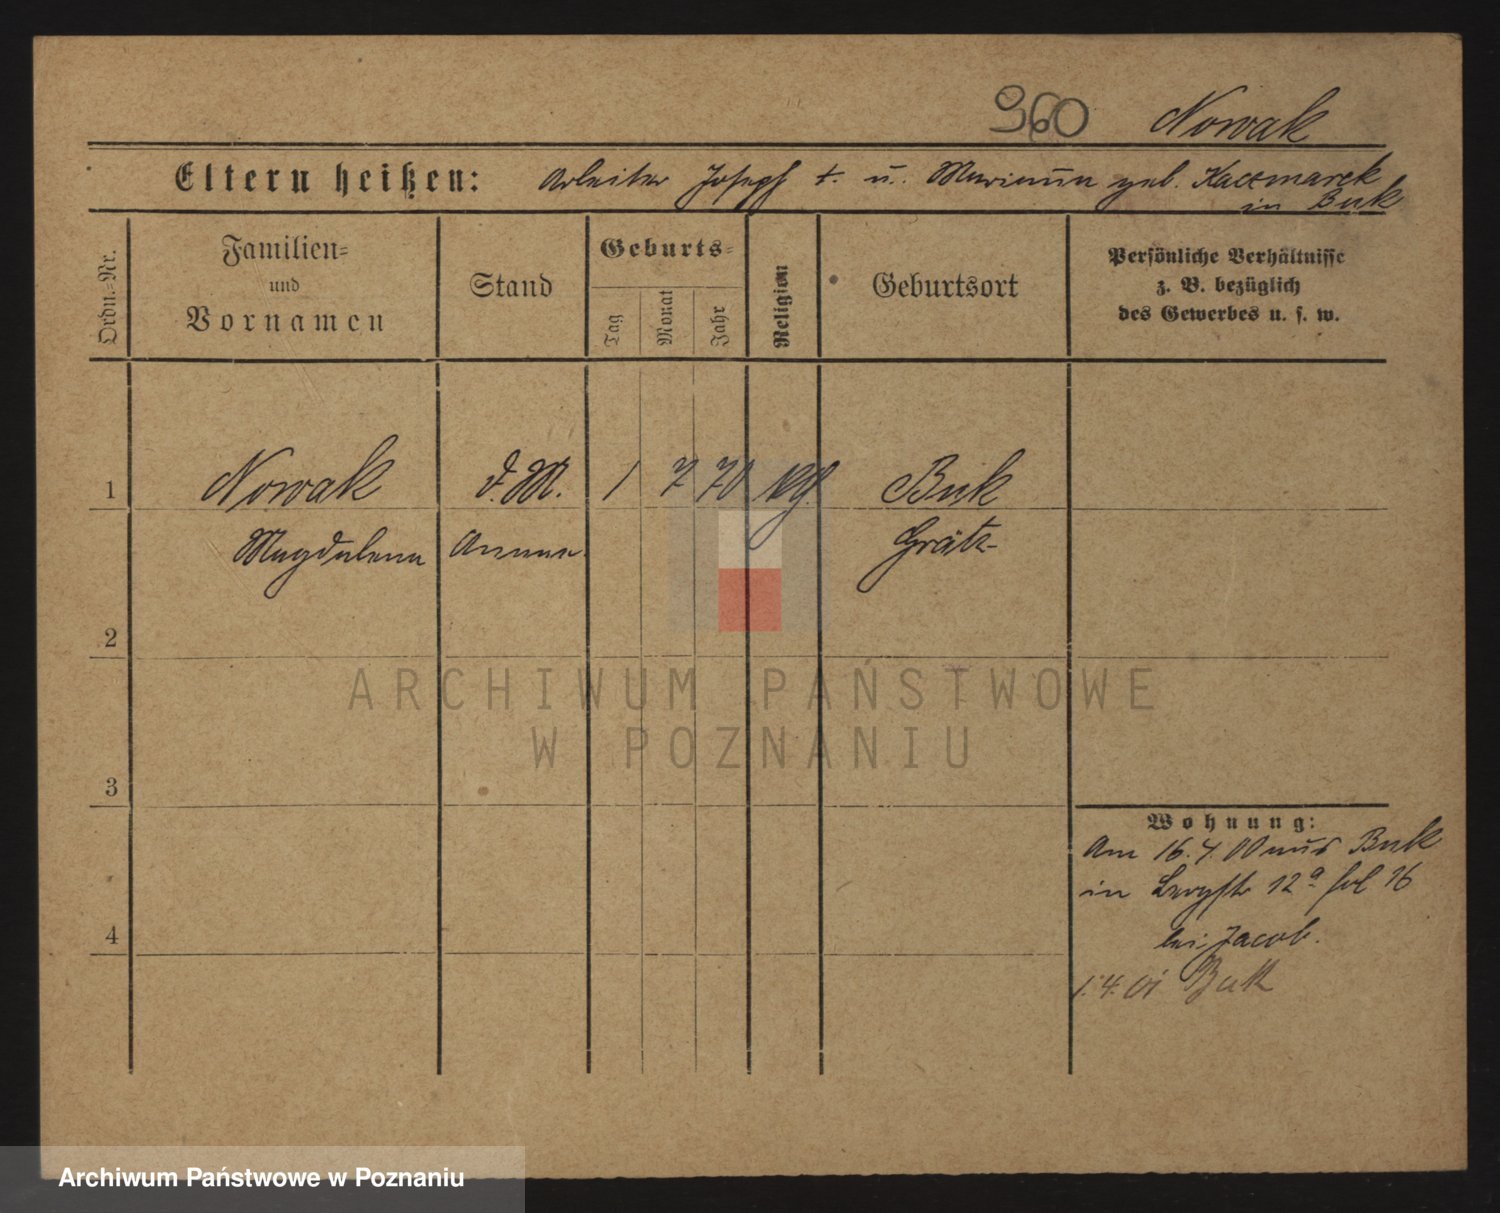 960 Nowak
Eltern heißen: Arbeiter Joseph †. u. Marianna geb. Kaczmarek
in Buk
Ordn.-Nr.
Familien-
und
Vornamen
Stand
Geburts-
Tag
Monat
Jahr
Religion
Geburtsort
Persönliche Verhältnisse
z. B. bezüglich
des Gewerbes u. s. w.
1 Nowak d. M. 1 7 70 Buk
Magdalena Grätz
2
3
4
Wohnung:
Am 16. 4. 00 aus Buk
in Bergstr 12a
bei Jacob.
1. 4. 01 Buk
ARCHIWUM PAŃSTWOWE
W POZNANIU
Archiwum Państwowe w Poznaniu